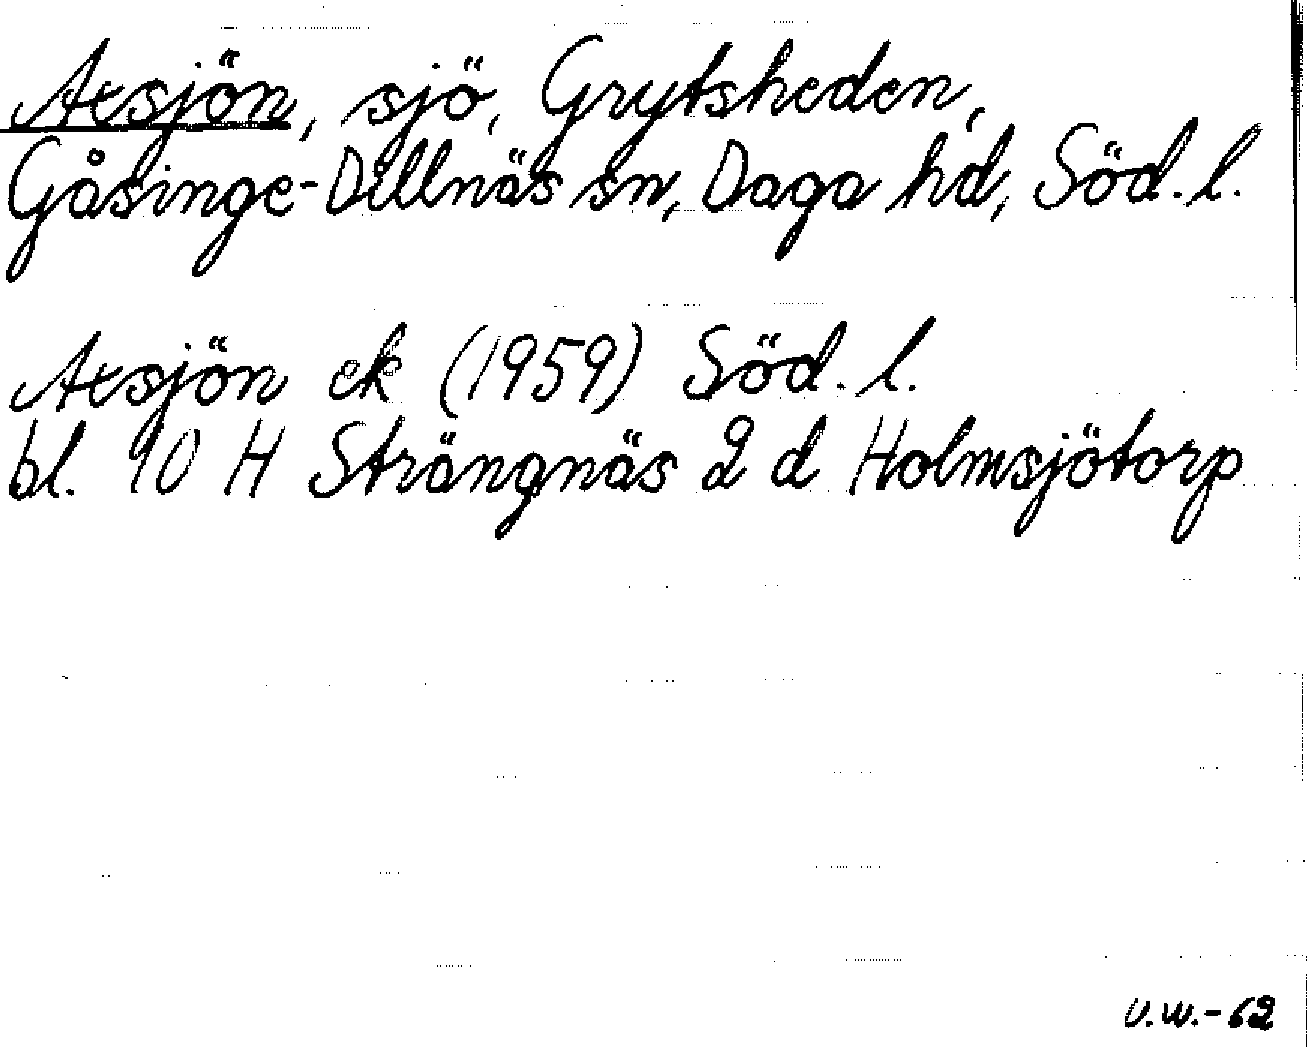 Axsjön, sjö, Grytsheden,
Gåsinge-Dillnäs sn, Daga hd, Söd. l.
Axsjön ek (1959) Söd. l.
bl. 10 H Strängnäs 2 d Holmsjötorp
U.W.-62